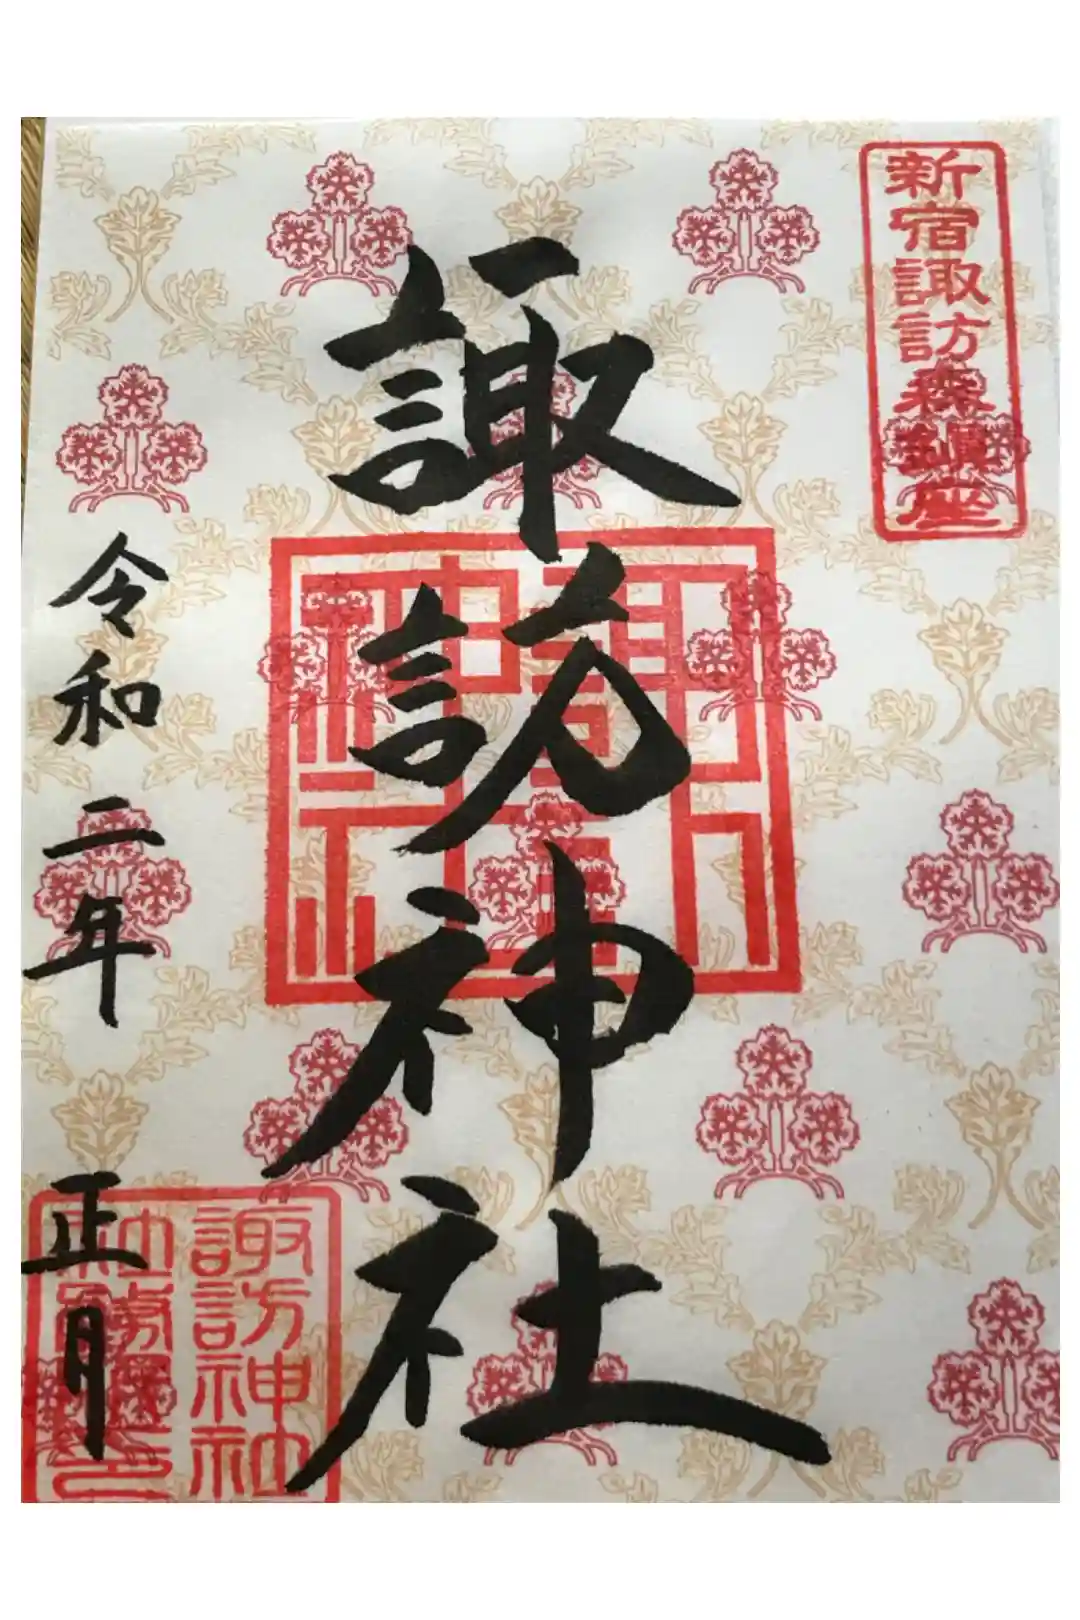 新宿諏訪森鎮座
諏訪神社
諏訪神社
令和二年 正月
諏訪神社
社務所之印